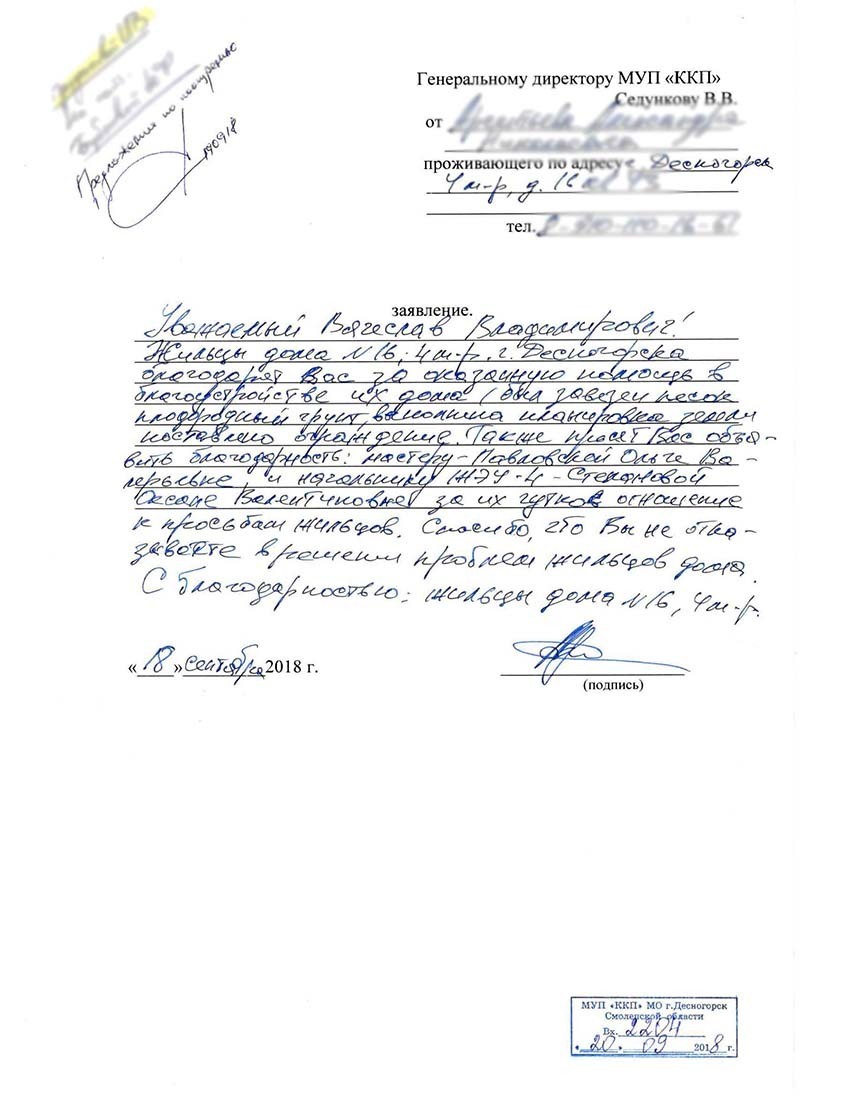 Предложения по поощрению
190918
Генеральному директору МУП «ККП»
Седункову В.В.
от
проживающего по адресу г. Десногорск
4 м-р, д. 16
тел.
заявление.
Уважаемый Вячеслав Владимирович!
Жильцы дома N16, 4 м-р. г. Десногорска
благодарят Вас за оказанную помощь в
благоустройстве их дома (был завезен песок
плодородный грунт, выполнена планировка земли
поставлено ограждение. Также просят Вас объя-
вить благодарность: мастеру-Павловской Ольге Ва-
лерьевне, и начальнику ЖЭУ-4-Степановой
Оксане Валентиновне за их чуткое отношение
к просьбам жильцов. Спасибо, что Вы не отка-
зываете в решении проблем жильцов дома.
С благодарностью: жильцы дома N16, 4 м-р.
«18» сентября 2018 г.
(подпись)
МУП «ККП» МО г.Десногорск
Смоленской области
Вх. 2204
«20» 09 2018 г.